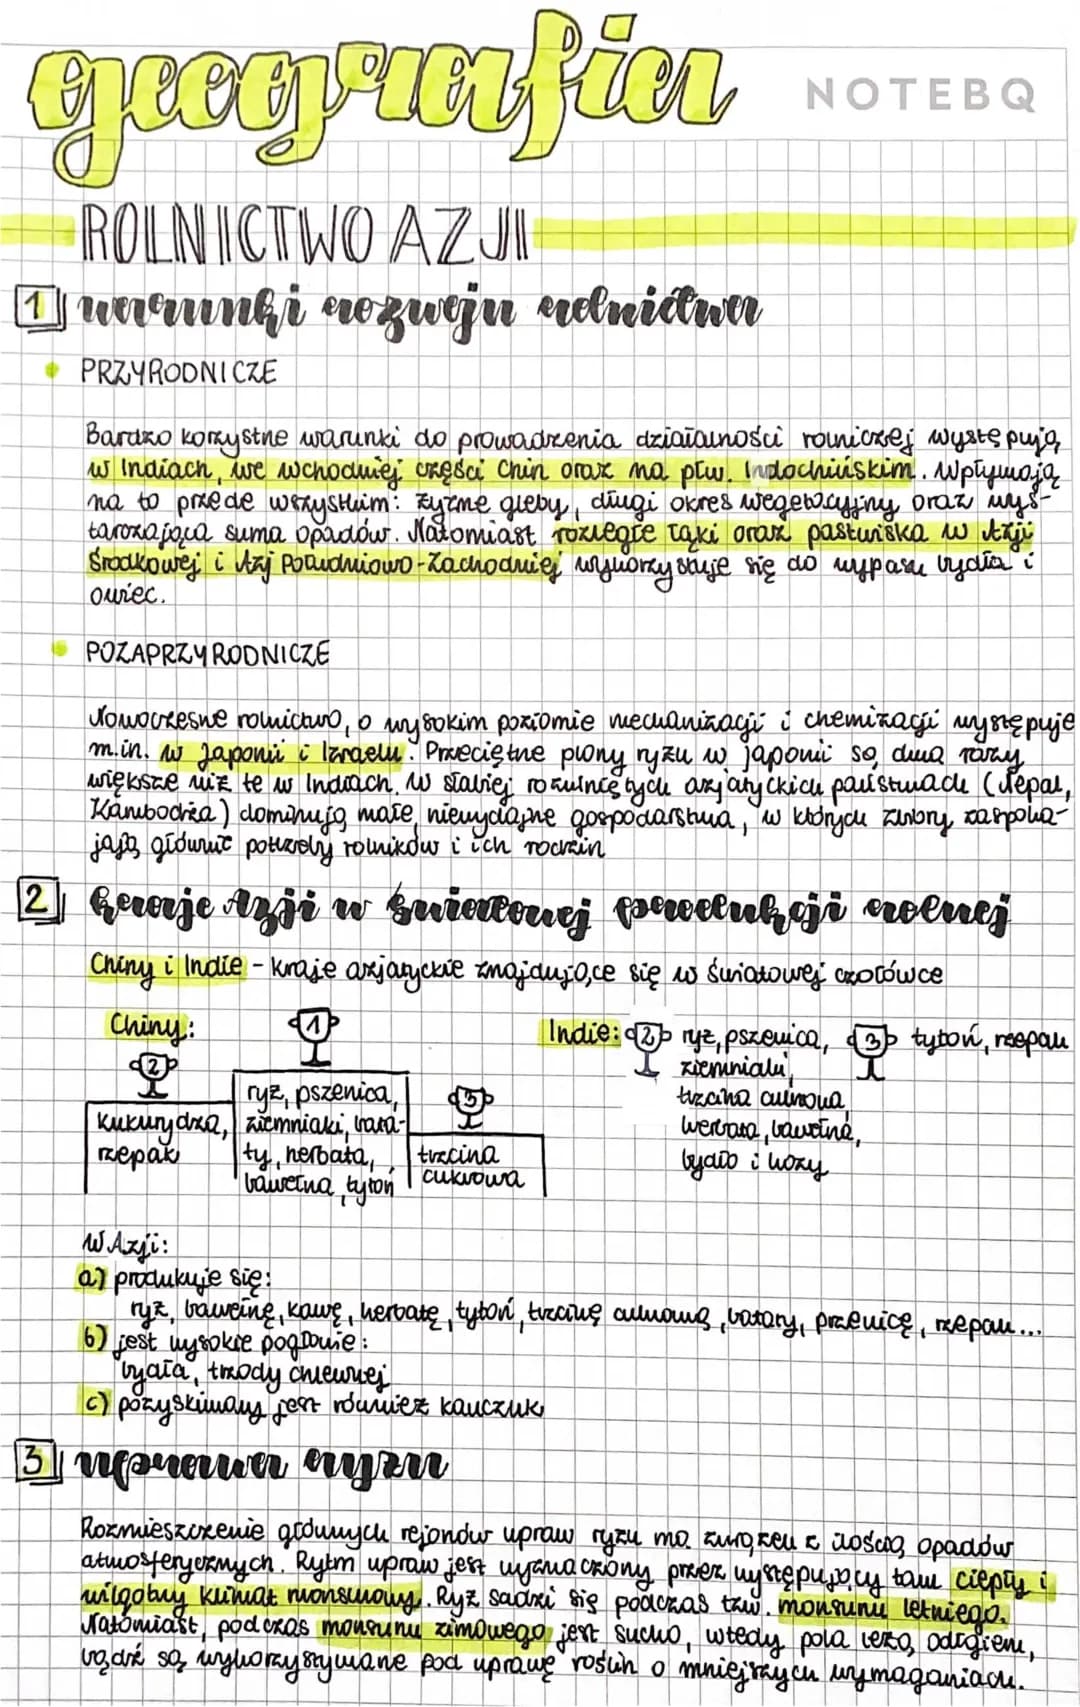 geografia
NOTEBQ
ROLNICTWO AZJI
1 warunki rozwoju rolnictwa
• PRZYRODNICZE
Bardzo korzystne warunki do prowadzenia działalności rolniczej występują
w Indiach, we wschodniej części Chin oraz na płw. Indochińskim. Wpływają
na to przede wszystkim: żyzne gleby, długi okres wegetacyjny oraz wys-
tarczająca suma opadów. Natomiast rozległe łąki oraz pastwiska w Azji
Środkowej i Azji Południowo-Zachodniej wykorzystuje się do wypasu bydła i
owiec.
• POZAPRZYRODNICZE
Nowoczesne rolnictwo, o wysokim poziomie mechanizacji i chemizacji występuje
m.in. w Japonii i Izraelu. Przeciętne plony ryżu w Japonii są dwa razy
większe niż te w Indiach. W słabiej rozwiniętych azjatyckich państwach (Nepal,
Kambodża) dominują małe, niewydajne gospodarstwa, w których zbiory zaspoka-
jają głównie potrzeby rolników i ich rodzin
2 kraje Azji w światowej produkcji rolnej
Chiny i Indie - kraje azjatyckie znajdujące się w światowej czołówce
Chiny:
1
2
3
ryż, pszenica,
ziemniaki, bata-
ty, herbata,
bawełna, tytoń
kukurydza,
rzepak
trzcina
cukrowa
Indie: 2 ryż, pszenica,
ziemniaki,
trzcina cukrowa,
herbata, bawełna,
bydło i kozy
3 tytoń, rzepak
W Azji:
a) produkuje się:
ryż, bawełnę, kawę, herbatę, tytoń, trzcinę cukrową, bataty, pszenicę, rzepak...
b) jest wysokie pogłowie:
bydła, trzody chlewnej
c) pozyskiwany jest również kauczuk
3 uprawa ryżu
Rozmieszczenie głównych rejonów upraw ryżu ma związek z ilością opadów
atmosferycznych. Rytm upraw jest wyznaczony przez występujący tam ciepły i
wilgotny klimat monsunowy. Ryż sadzi się podczas tzw. monsunu letniego.
Natomiast, podczas monsunu zimowego jest sucho, wtedy pola leżą odłogiem,
bądź są wykorzystywane pod uprawę roślin o mniejszych wymaganiach.